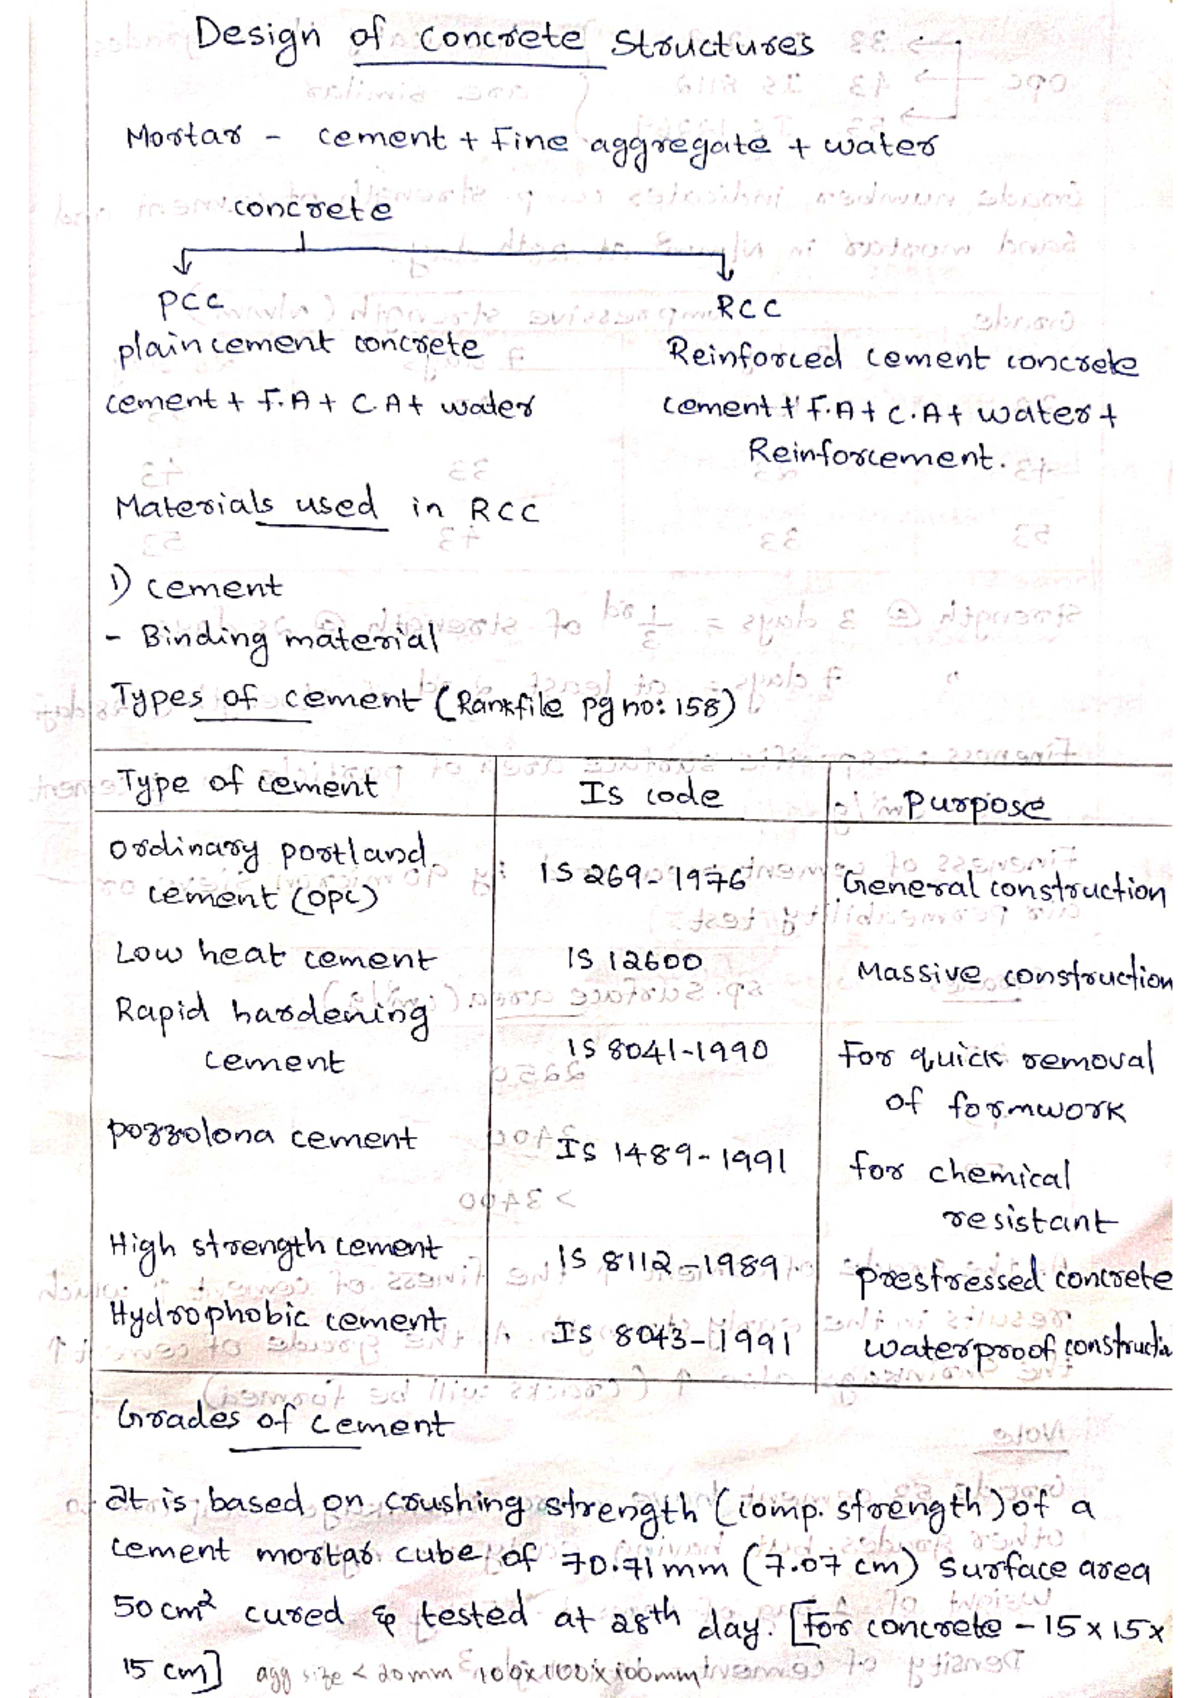 Design of concrete structures
Mortar - cement + Fine aggregate + water
concrete
PCC
RCC
plain cement concrete
Reinforced cement concrete
cement + F.A + C.A + water
cement + F.A + C.A + water +
Reinforcement.
Materials used in RCC
1) cement
- Binding material
Types of cement (Rankfile pg no: 158)
Type of cement Is code purpose
ordinary portland
cement (opc) IS 269-1976 General construction
Low heat cement IS 12600 Massive construction
Rapid hardening
cement IS 8041-1990 For quick removal
of formwork
pozzolona cement IS 1489-1991 for chemical
resistant
High strength cement IS 8112-1989 prestressed concrete
Hydrophobic cement IS 8043-1991 waterproof constructi
Grades of cement
It is based on crushing strength (comp. strength) of a
cement mortar cube of 70.71 mm (7.07 cm) surface area
50 cm² cured & tested at 28th day. [For concrete - 15 x 15 x
15 cm] agg size < 20mm 100x100x100mm